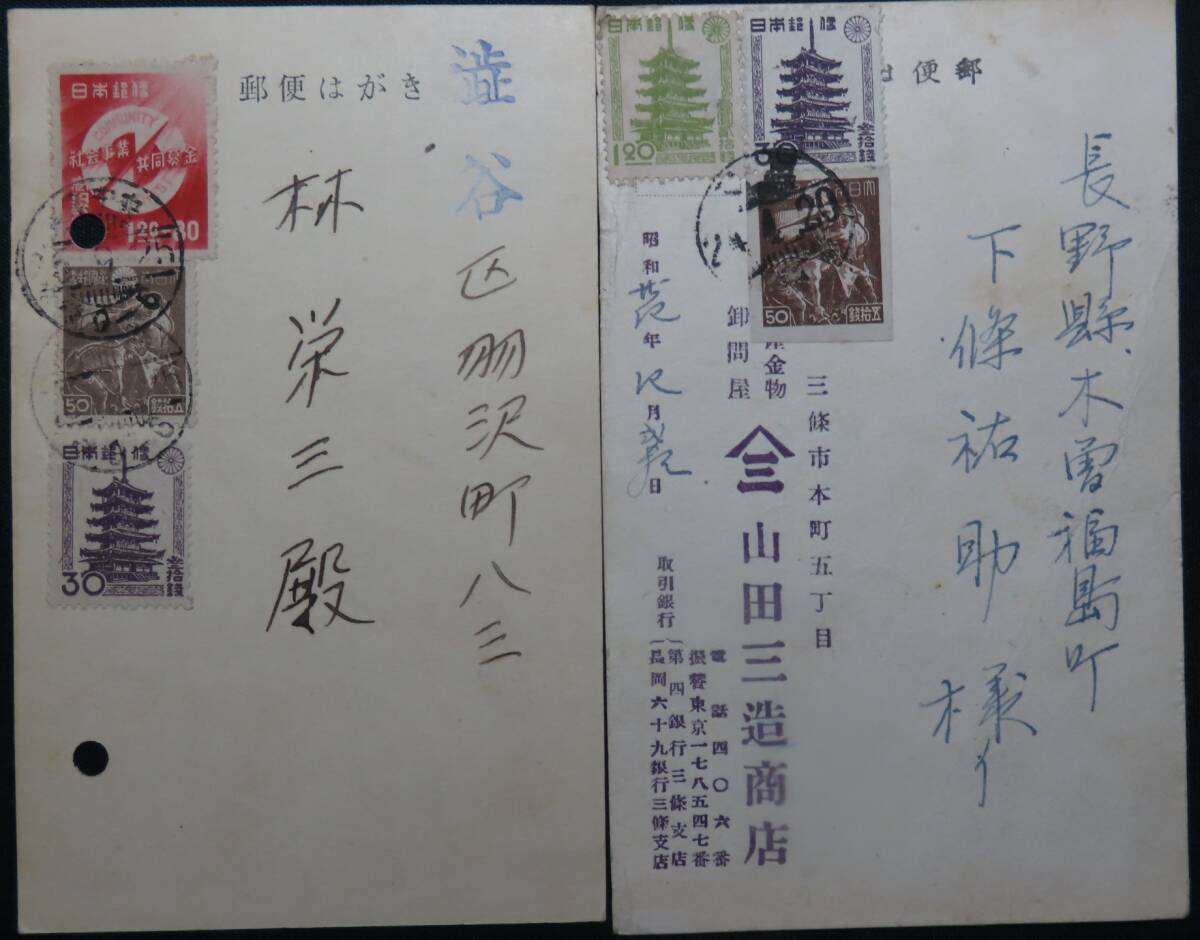 郵便はがき
澁谷区羽沢町八三
林栄三殿
日本郵便
COMMUNITY
社会事業
共同募金
1.20
日本郵便
50
五拾錢
日本郵便
30
参拾錢
便郵
長野縣木曽福島町
下條祐助様
日本郵便
1.20
日本郵便
参拾錢
50
五拾錢
29
三條市本町五丁目
金物
卸問屋
三
山田三造商店
電話四〇六番
振替東京一七八五四七番
取引銀行
第四銀行三條支店
長岡六十九銀行三條支店
昭和
年
月
日